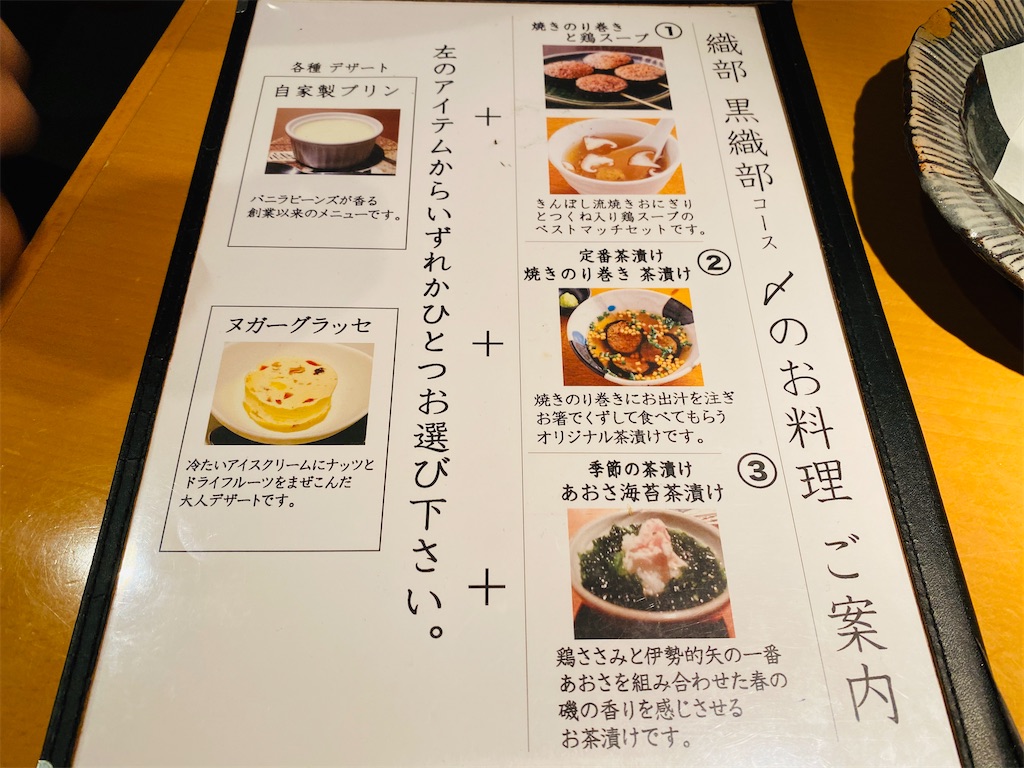 織部 黒織部コース 〆のお料理 ご案内
焼きのり巻き
と鶏スープ ①
きんぼし流焼きおにぎり
とつくね入り鶏スープの
ベストマッチセットです。
定番茶漬け
焼きのり巻き 茶漬け ②
焼きのり巻きにお出汁を注ぎ
お箸でくずして食べてもらう
オリジナル茶漬けです。
季節の茶漬け
あおさ海苔茶漬け ③
鶏ささみと伊勢的矢の一番
あおさを組み合わせた春の
磯の香りを感じさせる
お茶漬けです。
+
+
+
左のアイテムからいずれかひとつお選び下さい。
各種 デザート
自家製プリン
バニラビーンズが香る
創業以来のメニューです。
ヌガーグラッセ
冷たいアイスクリームにナッツと
ドライフルーツをまぜこんだ
大人デザートです。